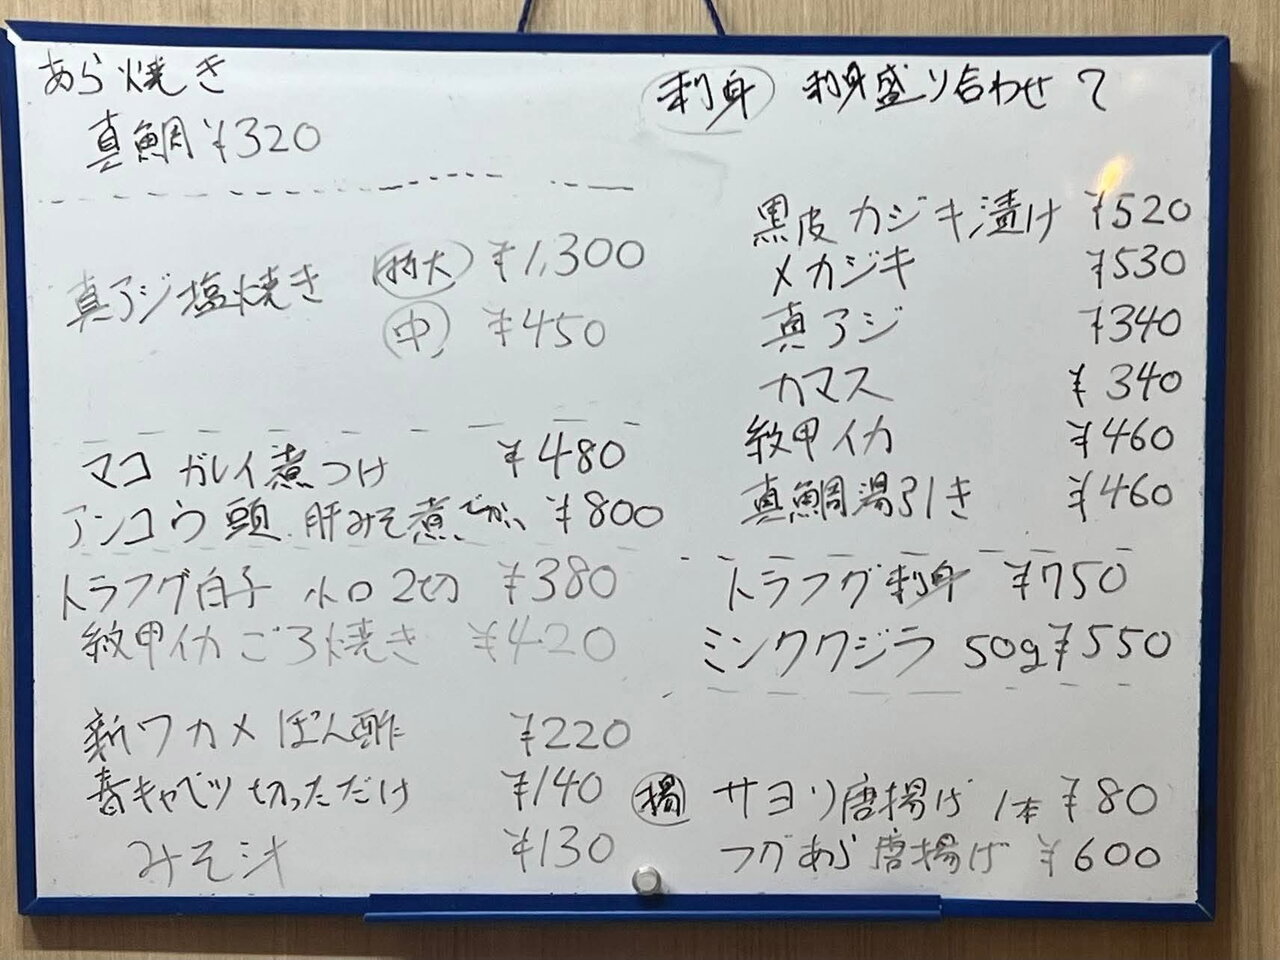 あら焼き
真鯛 ¥320
真アジ塩焼き 特大 ¥1,300
中 ¥450
マコガレイ煮つけ ¥480
アンコウ頭、肝みそ煮でかい ¥800
トラフグ白子 小口2切 ¥380
紋甲イカごろ焼き ¥420
新ワカメ ぽん酢 ¥220
春キャベツ 切っただけ ¥140
みそ汁 ¥130
刺身 刺身盛り合わせ
黒皮カジキ漬け ¥520
メカジキ ¥530
真アジ ¥340
カマス ¥340
紋甲イカ ¥460
真鯛湯引き ¥460
トラフグ刺身 ¥750
ミンククジラ 50g ¥550
揚 サヨリ唐揚げ 1本 ¥80
フグあら唐揚げ ¥600